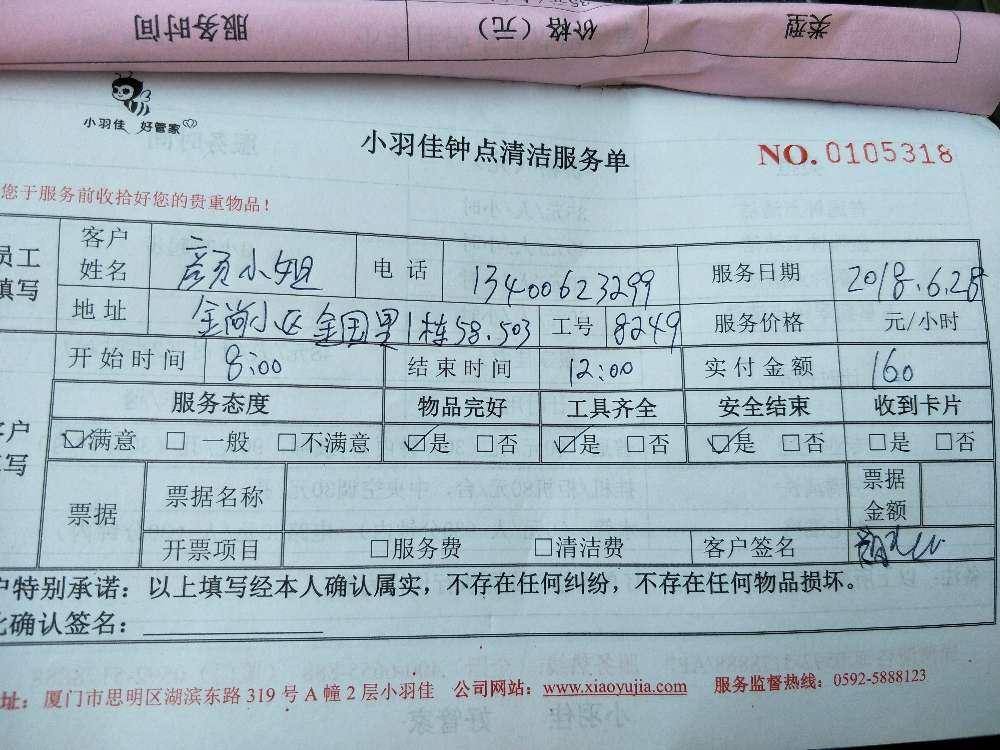 服务时间 价格（元） 类型
小羽佳 好管家
小羽佳钟点清洁服务单
NO. 0105318
您于服务前收拾好您的贵重物品！
员工填写
客户姓名 颜小姐 电 话 13400623299 服务日期 2018.6.28
地 址 金尚小区 金国里1栋58.503 工号 8249 服务价格 元/小时
开始时间 8:00 结束时间 12:00 实付金额 160
服务态度 物品完好 工具齐全 安全结束 收到卡片
客户填写
☑满意 □ 一般 □不满意 ☑是 □否 ☑是 □否 ☑是 □否 □是 □否
票据 票据名称 票据金额
开票项目 □服务费 □清洁费 客户签名
户特别承诺：以上填写经本人确认属实，不存在任何纠纷，不存在任何物品损坏。
此确认签名：
址：厦门市思明区湖滨东路 319 号 A 幢 2 层小羽佳 公司网站：www.xiaoyujia.com 服务监督热线：0592-5888123